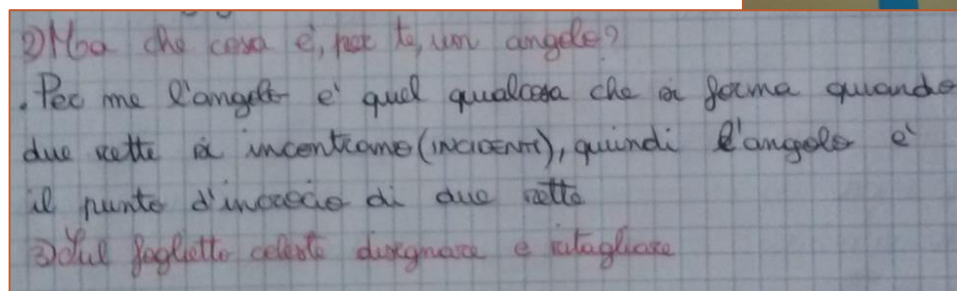 2) Ma che cosa è, per te, un angolo?
. Per me l'angolo e' quel qualcosa che si forma quando
due rette si incontrano (INCIDENTI), quindi l'angolo e'
il punto d'incrocio di due rette
3) Sul foglietto celeste disegnare e ritagliare